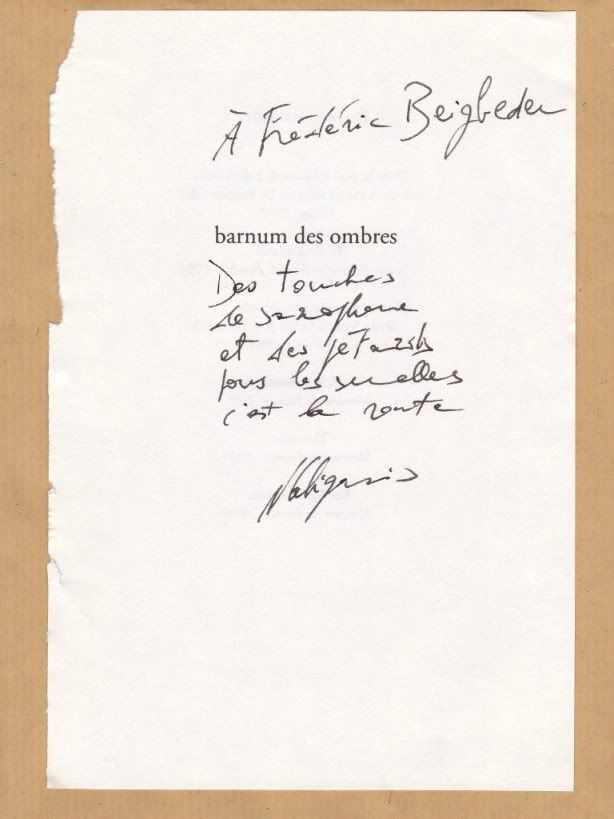 À Frédéric Beigbeder
barnum des ombres
Des touches
de saxophone
et des pétards
sous les semelles
c'est la route